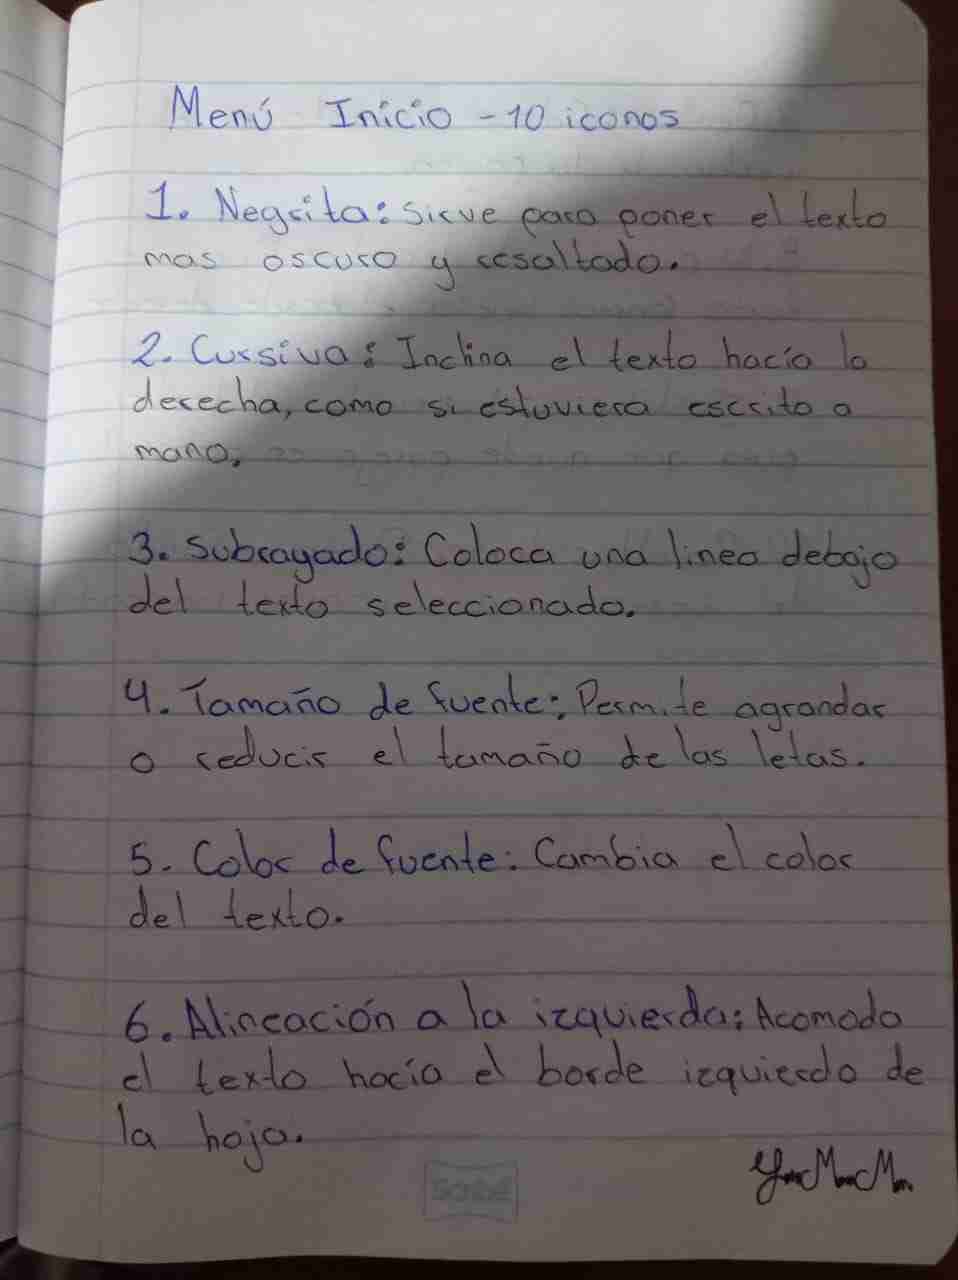 Menú Inicio - 10 iconos
1. Negrita: Sirve para poner el texto
mas oscuro y resaltado.
2. Cursiva: Inclina el texto hacia la
derecha, como si estuviera escrito a
mano.
3. Subrayado: Coloca una linea debajo
del texto seleccionado.
4. Tamaño de fuente: Permite agrandar
o reducir el tamaño de las letas.
5. Color de fuente: Cambia el color
del texto.
6. Alineación a la izquierda: Acomoda
el texto hacia el borde izquierdo de
la hoja.